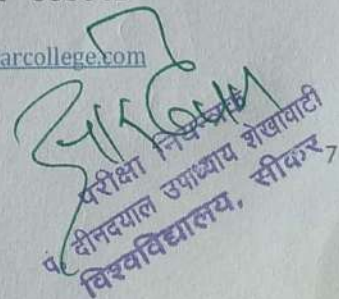 arcollege.com
परीक्षा नियन्त्रक
पं. दीनदयाल उपाध्याय शेखावाटी
विश्वविद्यालय, सीकर
7